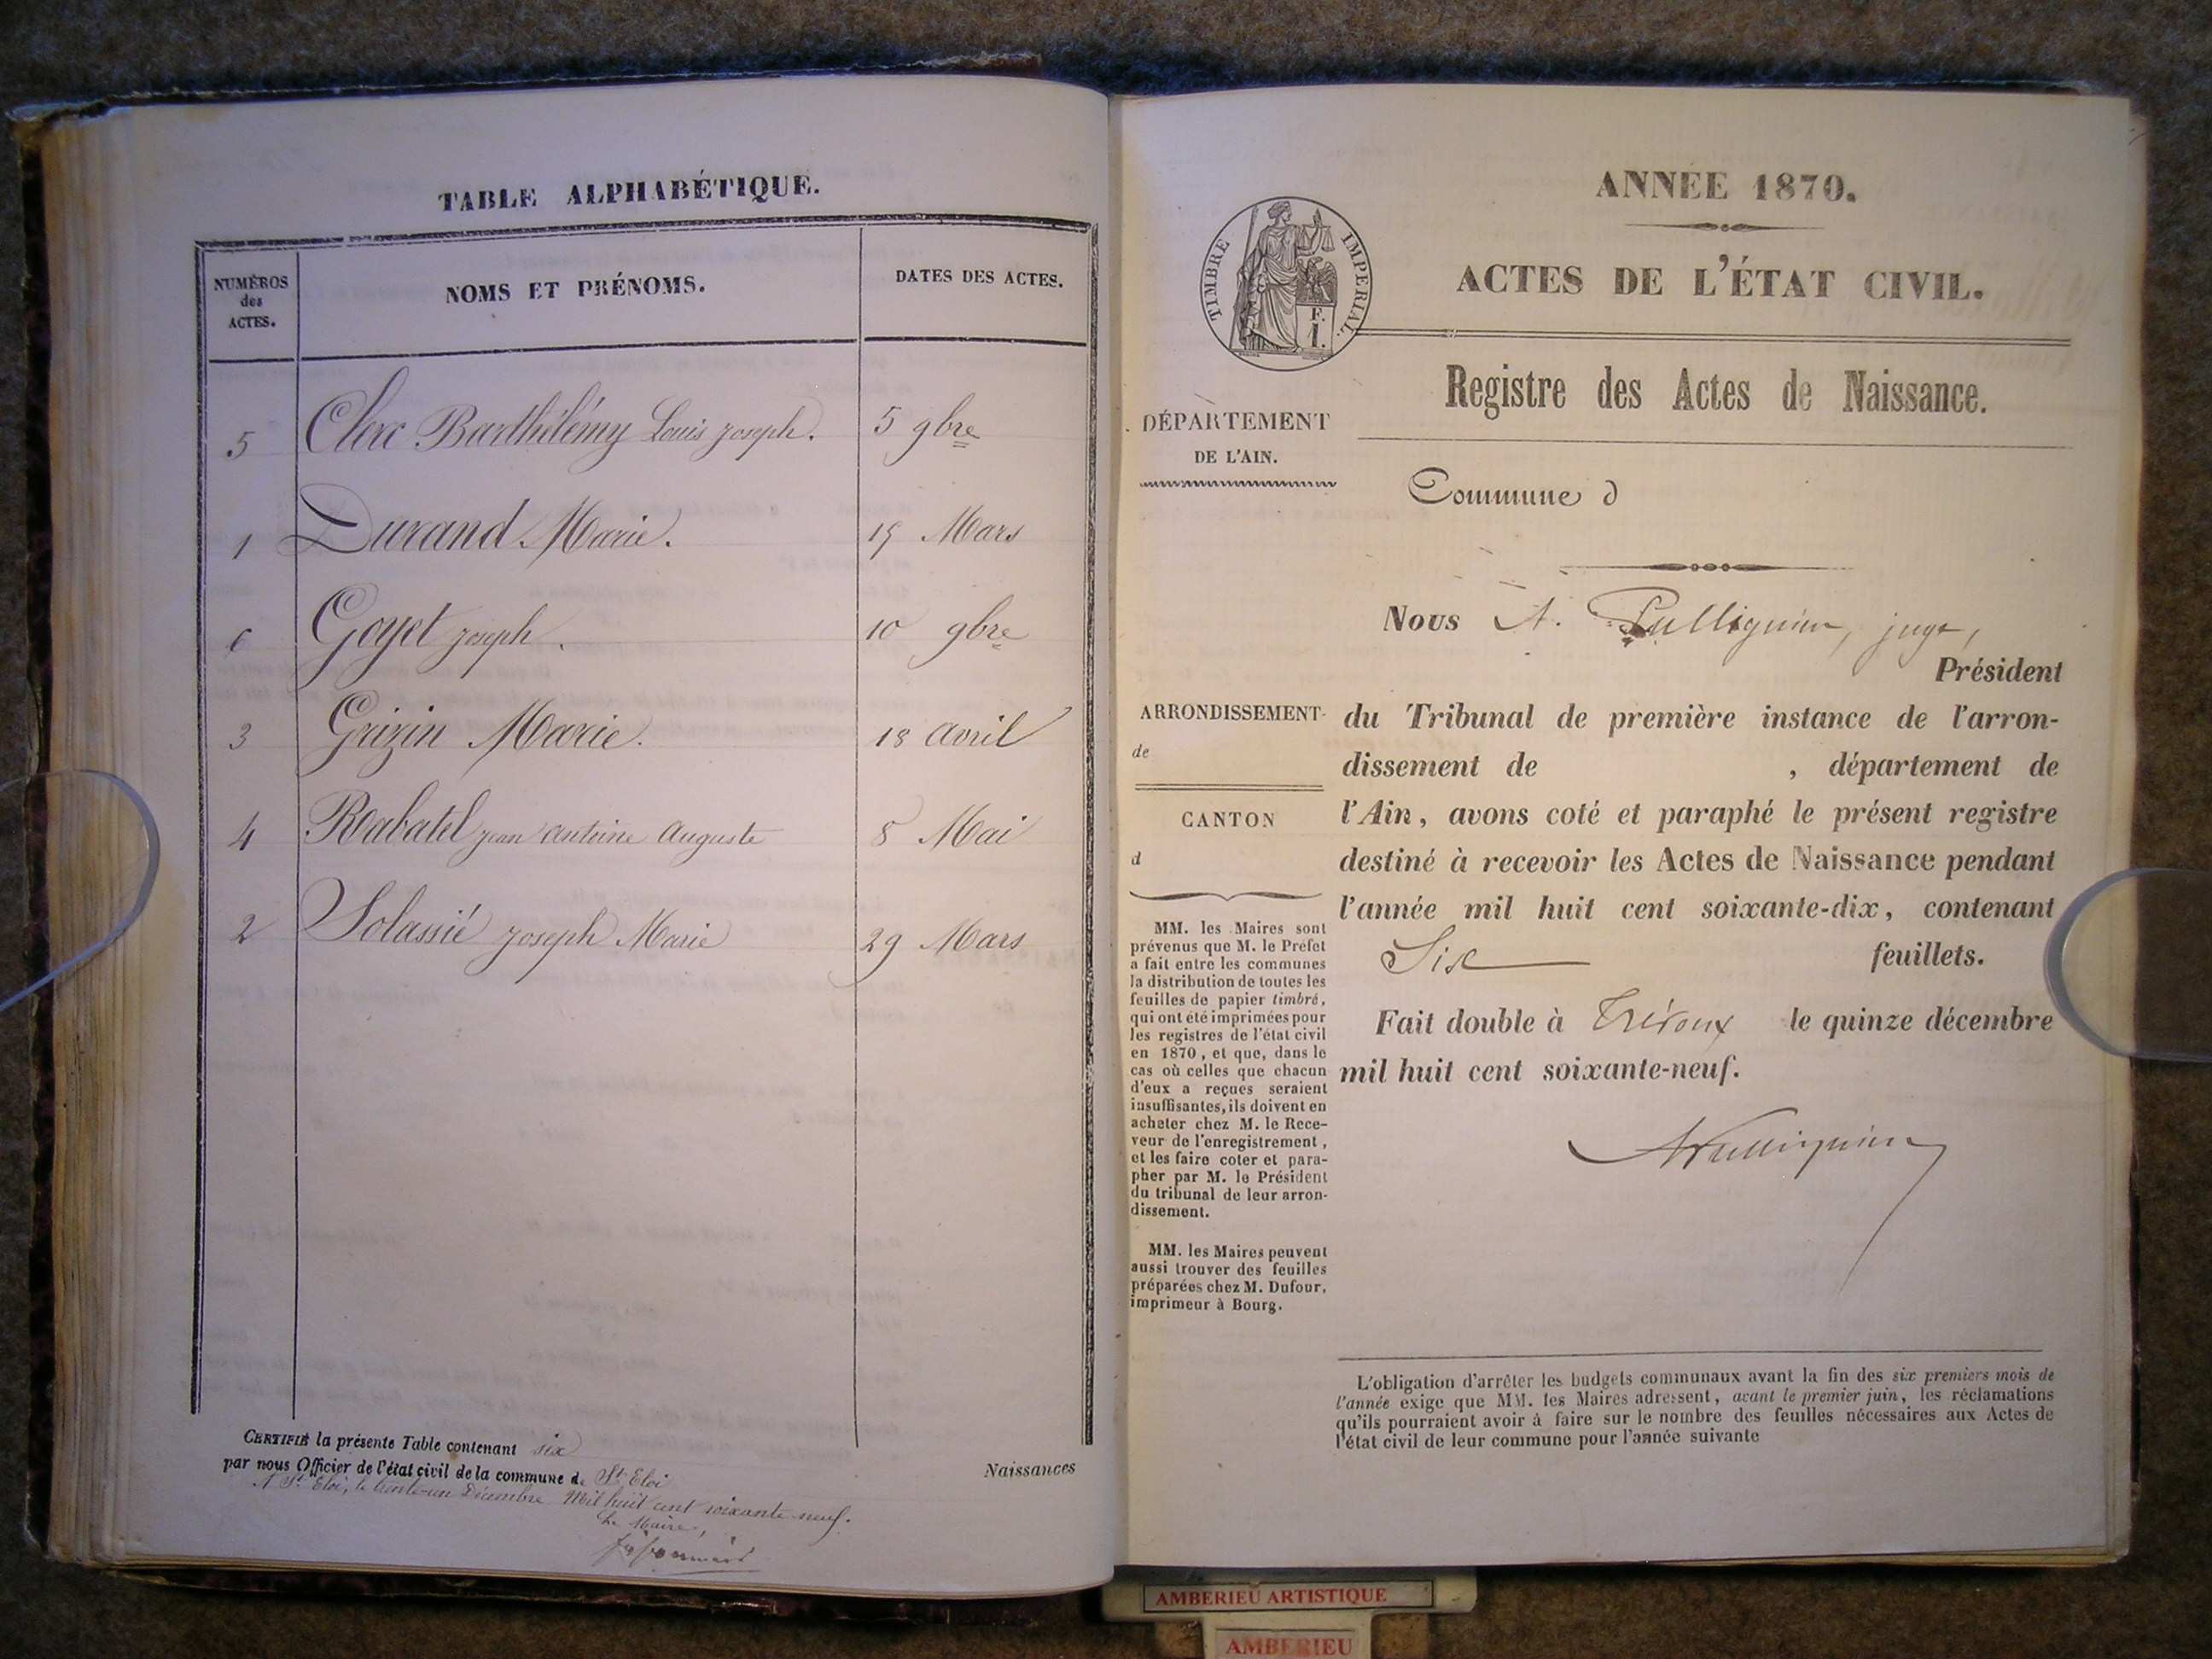 TABLE ALPHABÉTIQUE.
NUMÉROS des ACTES.
NOMS ET PRÉNOMS.
DATES DES ACTES.
5 Clerc Barthélémy Louis joseph. 5 9bre
1 Durand Marie. 19 Mars
6 Goyet joseph. 10 9bre
3 Grizin Marie. 18 avril
4 Rabatel jean antoine auguste 8 Mai
2 Solassié joseph Marie 29 Mars
CERTIFIÉ la présente Table contenant six
par nous Officier de l'état civil de la commune de St Eloi
A St Eloi, le trente-un Décembre Mil huit cent soixante neuf.
Le Maire,
Naissances
ANNÉE 1870.
TIMBRE IMPERIAL.
F.
1.
ACTES DE L'ÉTAT CIVIL.
Registre des Actes de Naissance.
DÉPARTEMENT
DE L'AIN.
Commune d
Nous A. Pulliguin, juge,
Président
ARRONDISSEMENT
de
CANTON
d
du Tribunal de première instance de l'arron-
dissement de , département de
l'Ain, avons coté et paraphé le présent registre
destiné à recevoir les Actes de Naissance pendant
l'année mil huit cent soixante-dix, contenant
Six feuillets.
Fait double à Trévoux le quinze décembre
mil huit cent soixante-neuf.
MM. les Maires sont
prévenus que M. le Préfet
a fait entre les communes
la distribution de toutes les
feuilles de papier timbré,
qui ont été imprimées pour
les registres de l'état civil
en 1870, et que, dans le
cas où celles que chacun
d'eux a reçues seraient
insuffisantes, ils doivent en
acheter chez M. le Rece-
veur de l'enregistrement,
et les faire coter et para-
pher par M. le Président
du tribunal de leur arron-
dissement.
MM. les Maires peuvent
aussi trouver des feuilles
préparées chez M. Dufour,
imprimeur à Bourg.
L'obligation d'arrêter les budgets communaux avant la fin des six premiers mois de
l'année exige que MM. les Maires adressent, avant le premier juin, les réclamations
qu'ils pourraient avoir à faire sur le nombre des feuilles nécessaires aux Actes de
l'état civil de leur commune pour l'année suivante
AMBERIEU ARTISTIQUE
AMBERIEU